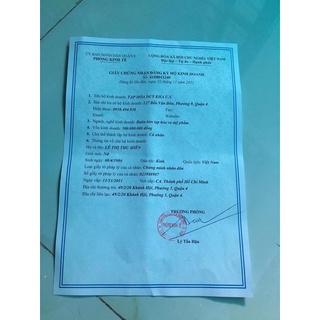 ỦY BAN NHÂN DÂN QUẬN 4
PHÒNG KINH TẾ
CỘNG HÒA XÃ HỘI CHỦ NGHĨA VIỆT NAM
Độc lập - Tự do - Hạnh phúc
GIẤY CHỨNG NHẬN ĐĂNG KÝ HỘ KINH DOANH
Số:
Đăng ký lần đầu, ngày
1. Tên hộ kinh doanh: TẠP HÓA
2. Địa chỉ trụ sở hộ kinh doanh: 127 Bến Vân Đồn, Phường 9, Quận 4
Điện thoại: Fax:
Email: Website:
3. Ngành, nghề kinh doanh: Buôn bán tạp hóa và mỹ phẩm
4. Vốn kinh doanh: 500.000.000 đồng
5. Chủ thể thành lập hộ kinh doanh: Cá nhân
6. Thông tin về chủ hộ kinh doanh:
Họ và tên: LÊ THỊ THU HIỀN
Giới tính: Nữ
Sinh ngày: Dân tộc: Kinh Quốc tịch: Việt Nam
Loại giấy tờ pháp lý của cá nhân: Chứng minh nhân dân
Số giấy tờ pháp lý của cá nhân:
Ngày cấp: Nơi cấp: CA. Thành phố Hồ Chí Minh
Địa chỉ thường trú: 49/2/20 Khánh Hội, Phường 3, Quận 4
Địa chỉ liên lạc: 49/2/20 Khánh Hội, Phường 3, Quận 4
TRƯỞNG PHÒNG
Lý Tấn Hòa